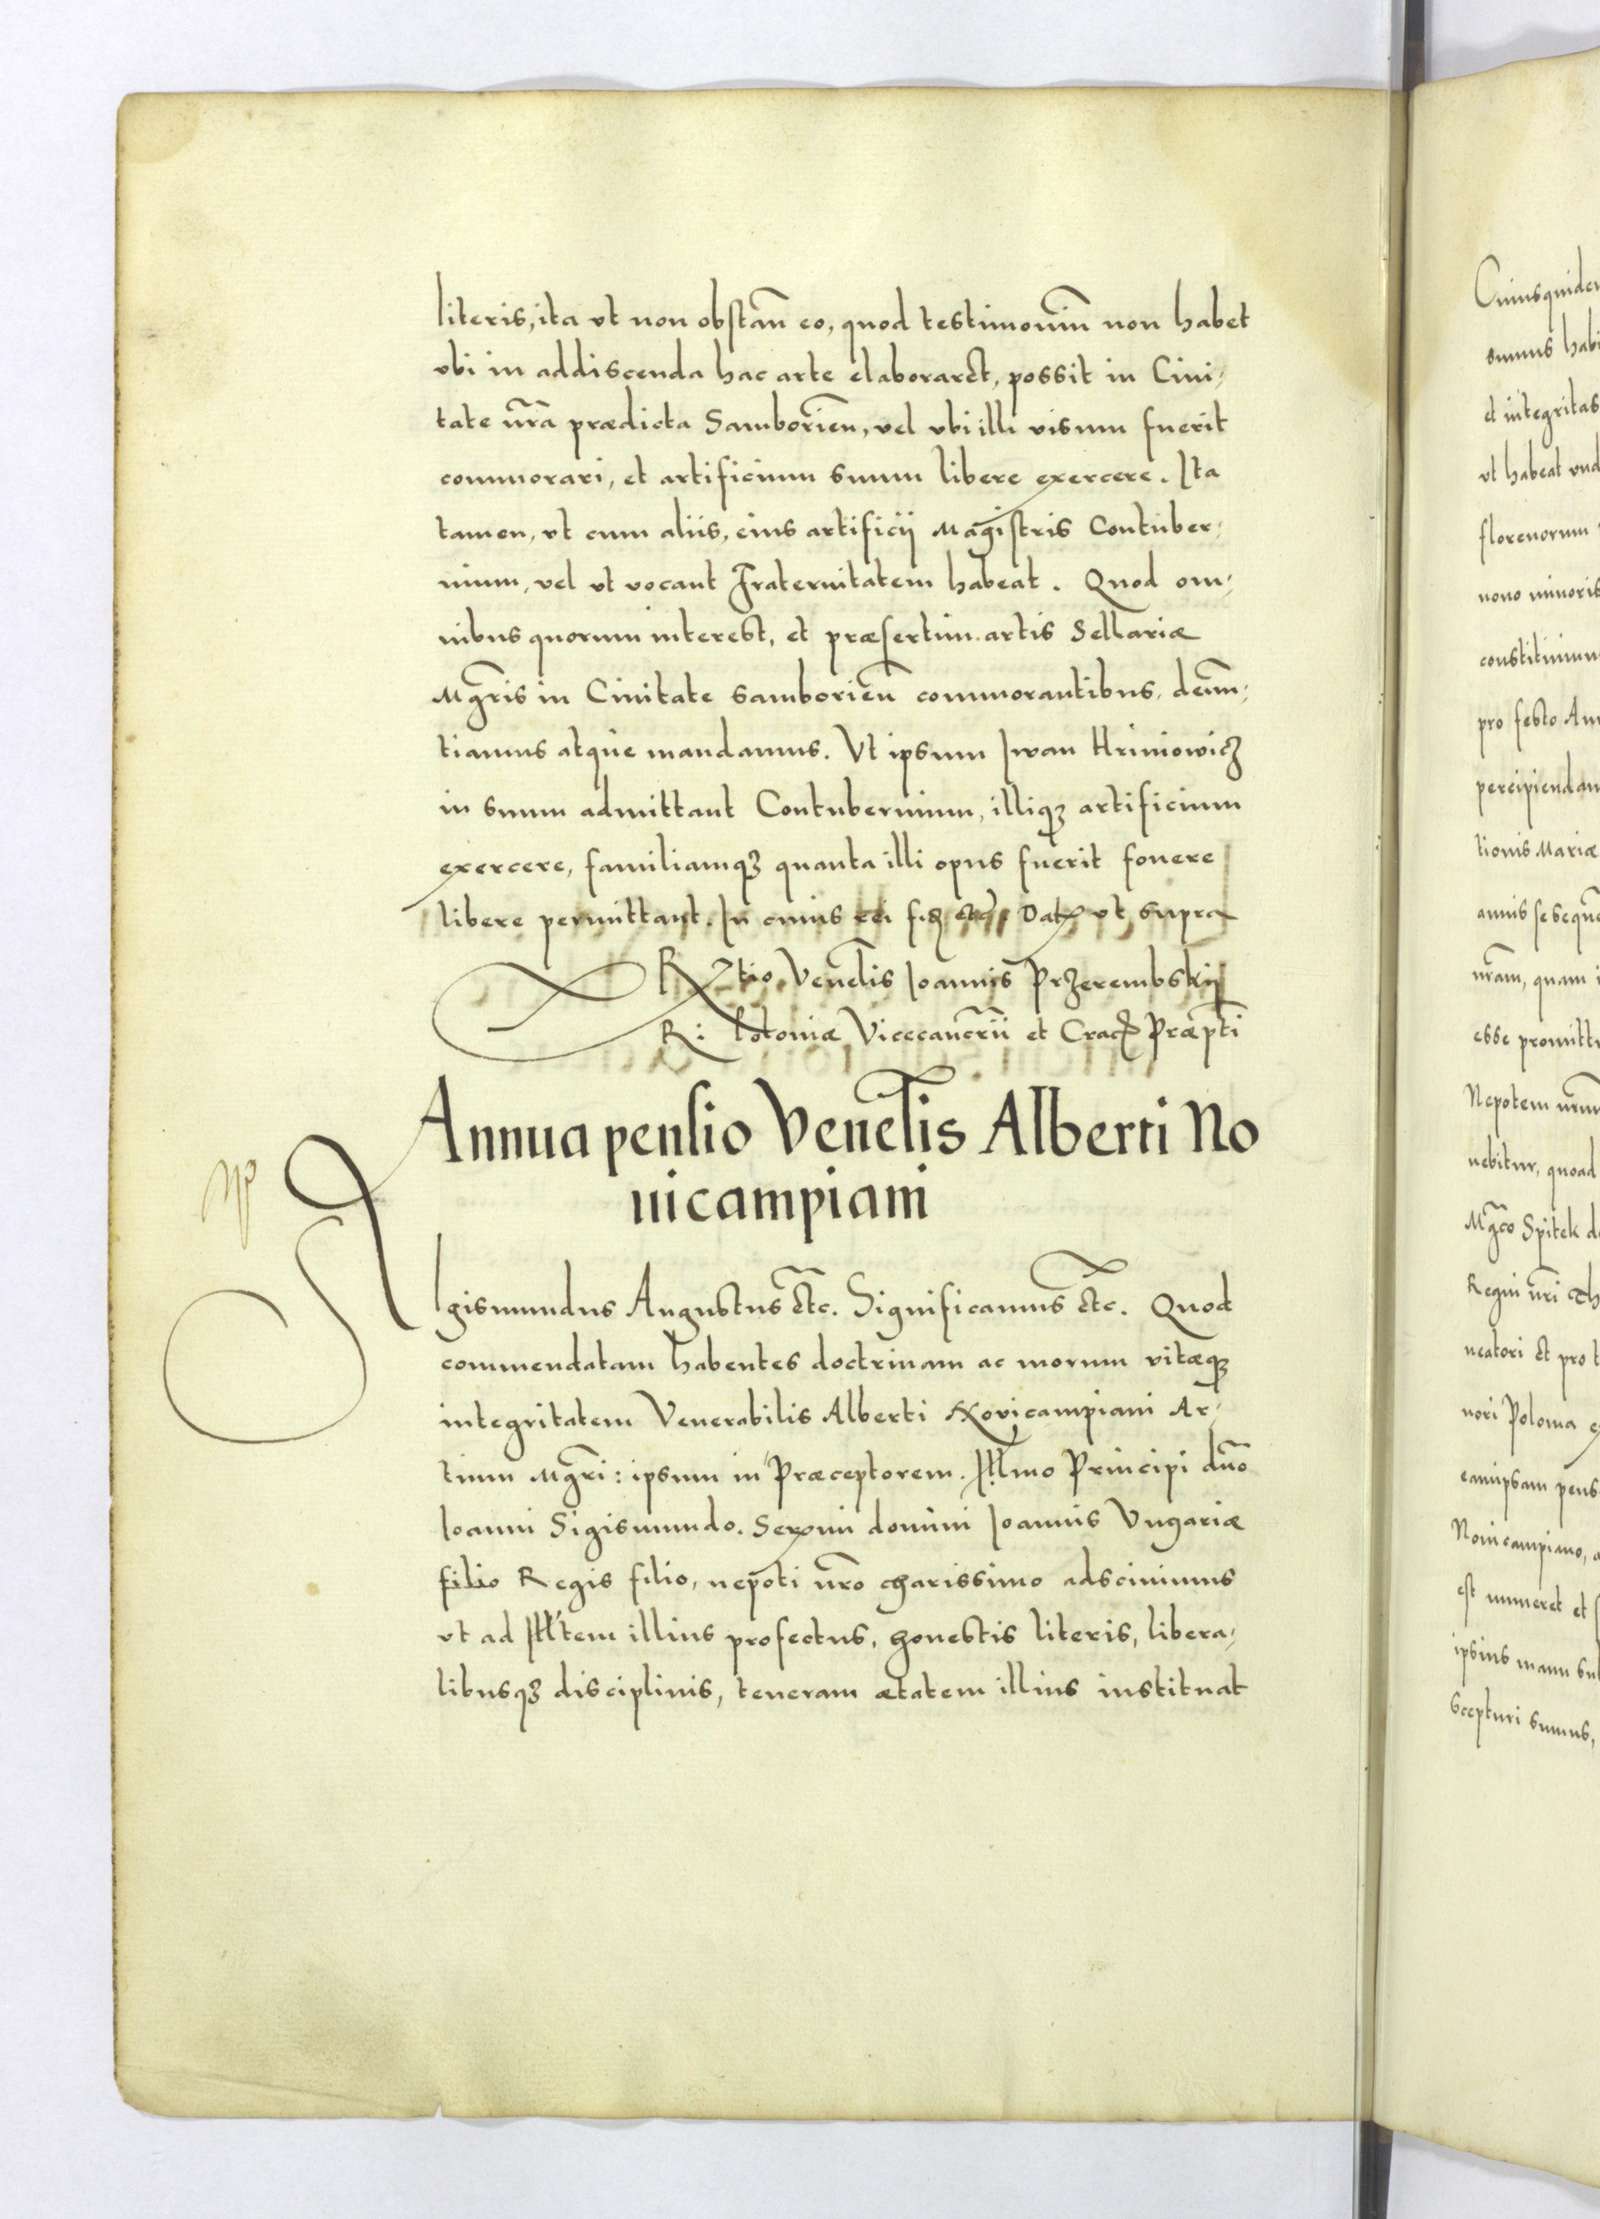 literis, ita vt non obstan̄ eo, quod testimoniū non habet
vbi in addiscenda hac arte elaboraret, possit in Ciui-
tate nr̄a prædicta Samborien̄, vel vbi illi visum fuerit
commorari, et artificium suum libere exercere. Ita
tamen, vt cum aliis, eius artificij Magistris Contuber-
nium, vel vt vocant Fraternitatem habeat. Quod om-
nibus quorum interest, et præsertim artis Sellariæ
Mgr̄is in Ciuitate Samborien̄ commorantibus, denun-
tiamus atque mandamus. Vt ipsum Iwan Hriniowicz
in suum admittant Contubernium, illiqꝫ artificium
exercere, familiamqꝫ quanta illi opus fuerit fouere
libere permittant. In cuius rei fid etc. Dat vt supra
Rtio Venelis Ioannis Przerembskij
R: Poloniæ Vicecancrii et Crac Præpti
Annua pensio Venelis Alberti No
uicampiani
SIgismundus Augustus etc. Significamus etc. Quod
commendatam habentes doctrinam ac morum vitæqꝫ
integritatem Venerabilis Alberti Novicampiani Ar-
tium Mgr̄i: ipsum in Præceptorem. Illmo Principi dn̄o
Ioanni Sigismundo. Sermi domini Ioannis Vngariæ
filio Regis filio, nepoti nr̄o charissimo adsciuimus
vt ad Illtem illius profectus, honestis literis, libera-
libusqꝫ disciplinis, teneram ætatem illius instituat
Cuiusquidem
sumus habi
et integritas
vt habeat vnd
florenorum
nono minoris
constituimus
pro festo Ann
percipiendam
tionis Mariæ
annis sesequē
nr̄am, quam i
esse promitt
Nepotem nr̄um
uebitur, quoad
Mgco Spitek d
Regni nr̄i Th
ucatori et pro t
nori Polonia e
eamipsam pens
Nouicampiano, a
est numeret et
ipsius manu sub
scepturi sumus,